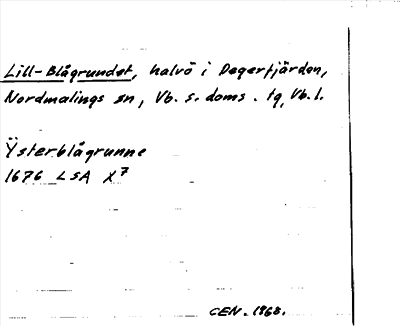 Lill-Blågrundet, halvö i Degerfjärden,
Nordmalings sn, Vb. s. doms. tg, Vb. l.
Ysterblågrunne
1676 LSA X7
CEN. 1968.